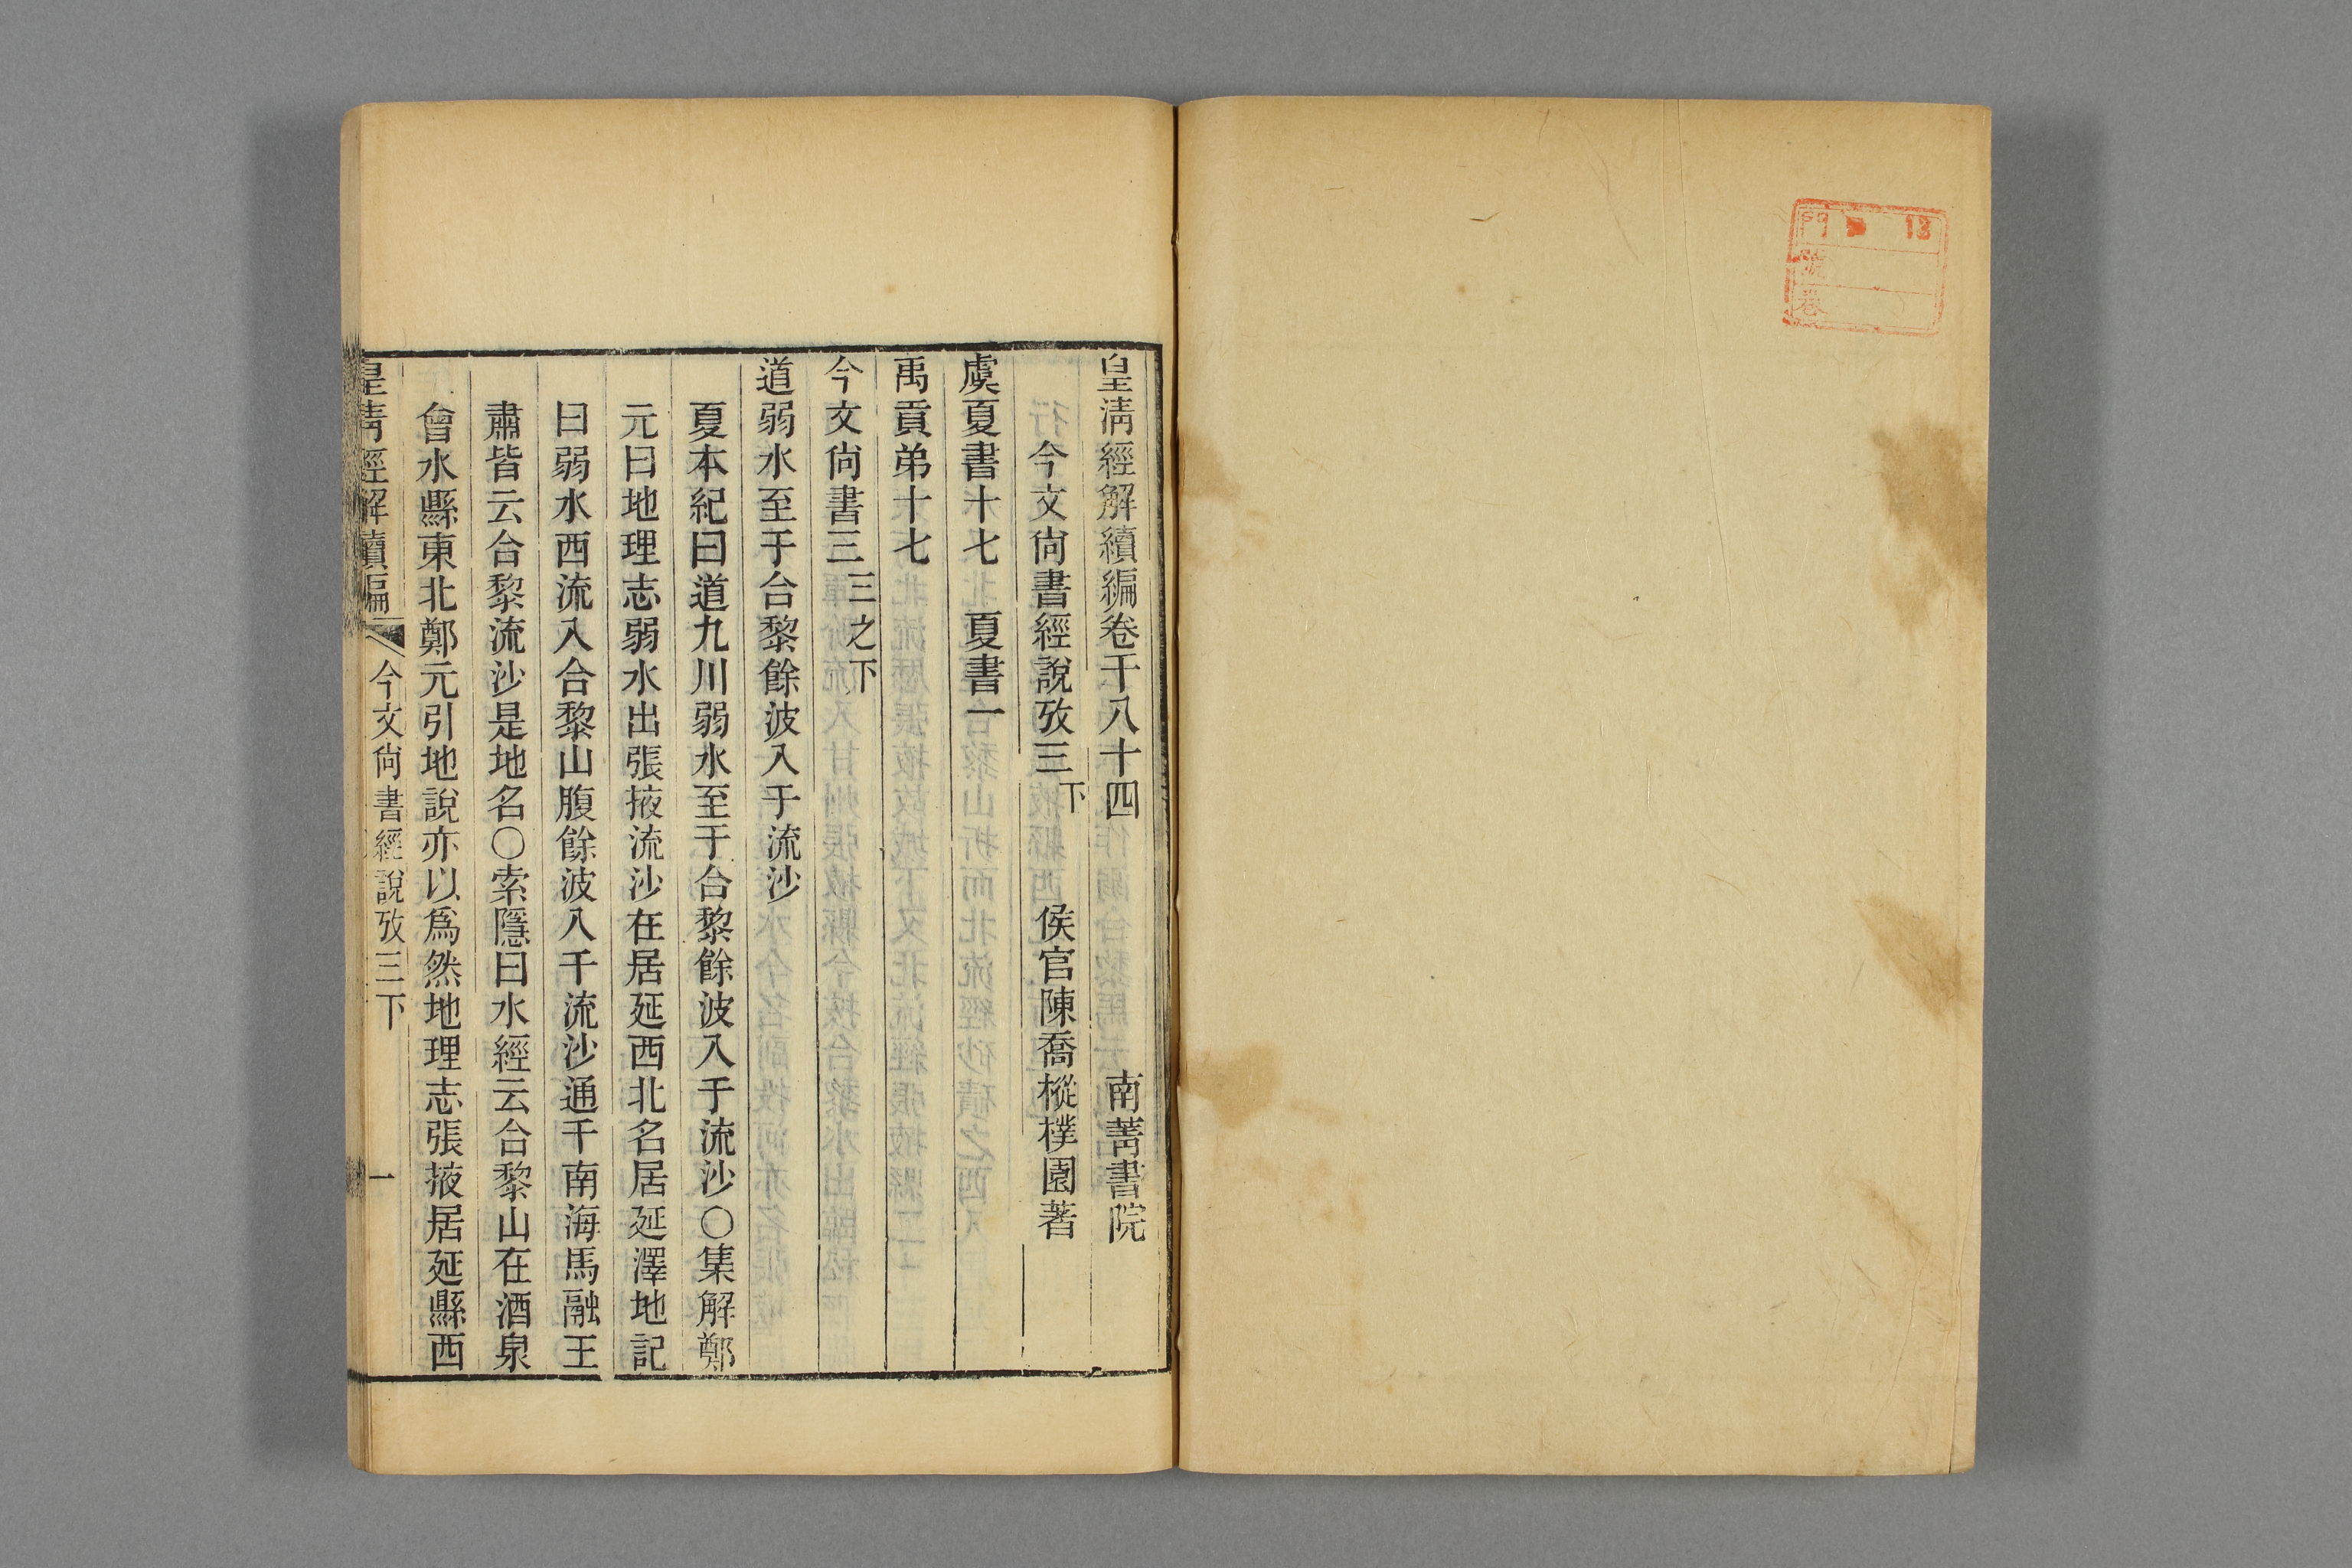 門 13
號
卷
皇淸經解續編卷千八十四 南菁書院
今文尙書經說攷三下 侯官陳喬樅樸園著
虞夏書十七 夏書一
禹貢弟十七
今文尙書三 三之下
道弱水至于合黎餘波入于流沙
夏本紀曰道九川弱水至于合黎餘波入于流沙○集解鄭
元曰地理志弱水出張掖流沙在居延西北名居延澤地記
曰弱水西流入合黎山腹餘波入于流沙通于南海馬融王
肅皆云合黎流沙是地名○索隱曰水經云合黎山在酒泉
會水縣東北鄭元引地說亦以爲然地理志張掖居延縣西
皇淸經解續編 今文尙書經說攷三下 一